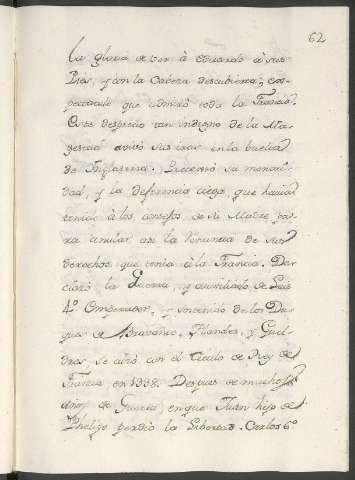 62
la gloria de ver à Eduardo à sus
Pies, y con la Cabeza descubierta; es-
pectaculo que admirò toda la Francia.
Este desprecio tan indigno de la Ma-
gestad avivò sus iras en la buelta
de Inglaterra. Pretextò su menori-
dad, y la deferencia ciega, que havia
tenido à los consejos de su Madre pa-
ra anular la renuncia de sus
derechos, que tenia à la Francia. De-
clarò la Guerra, y auxiliado de Luis
4º Emperador, y socorrido de los Du-
ques de Bravante, Flandes, y Guel-
dres, se alzò con el titulo de Rey de
Francia en 1338. Despues de muchos
años de Guerra, en que Juan hijo de
Phelipe perdiò la Libertad. Carlos 6º